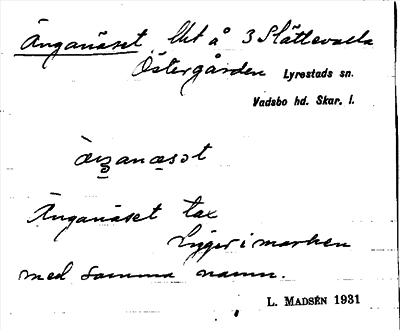 Änganäset, Utt å 3 Slättevalla
Östergården Lyrestads sn.
Vadsbo hd. Skar. l.
Änganäset tax
ligger i marken
med samma namn.
L. MADSÉN 1931